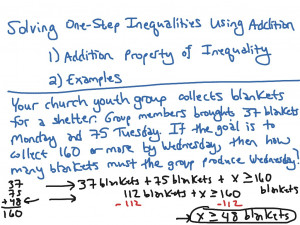 Solving One-Step Inequalities Using Addition
1) Addition Property of Inequality
2) Examples
Your church youth group collects blankets
for a shelter. Group members broughts 37 blankets
Monday and 75 Tuesday. If the goal is to
collect 160 or more by Wednesday, then how
many blankets must the group produce Wednesday?
37 → 37 blankets + 75 blankets + x ≥ 160 blankets
75 → 112 blankets + x ≥ 160
+48 ← -112 -112
160 x ≥ 48 blankets